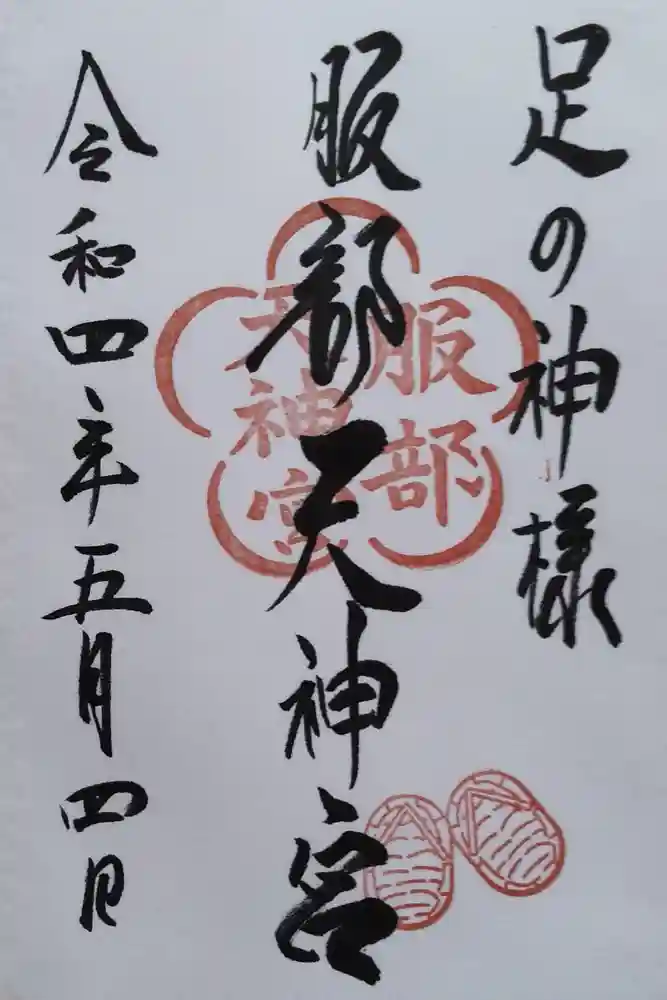 足の神様
服部天神宮
服部
天神宮
令和四年五月四日